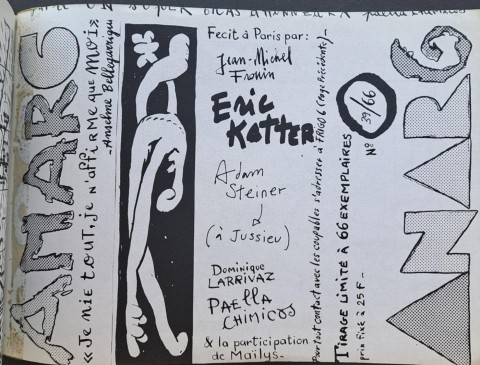 ANARC
« Je nie tout, je n'affirme que moi »
- Anselme Bellegarrigue
Fecit à Paris par :
Jean-Michel
Fronin
Eric
Katter
Adam
Steiner
(à Jussieu)
Dominique
LARRIVAZ
PAELLA
CHIMICOS
& la participation
de Maïlys_
Pour tout contact avec les coupables s'adresser à FRIGO 6 (Page Précédente)_
TIRAGE LIMITÉ À 66 EXEMPLAIRES
prix fixé à 25F_
N° 39/66
ANARC